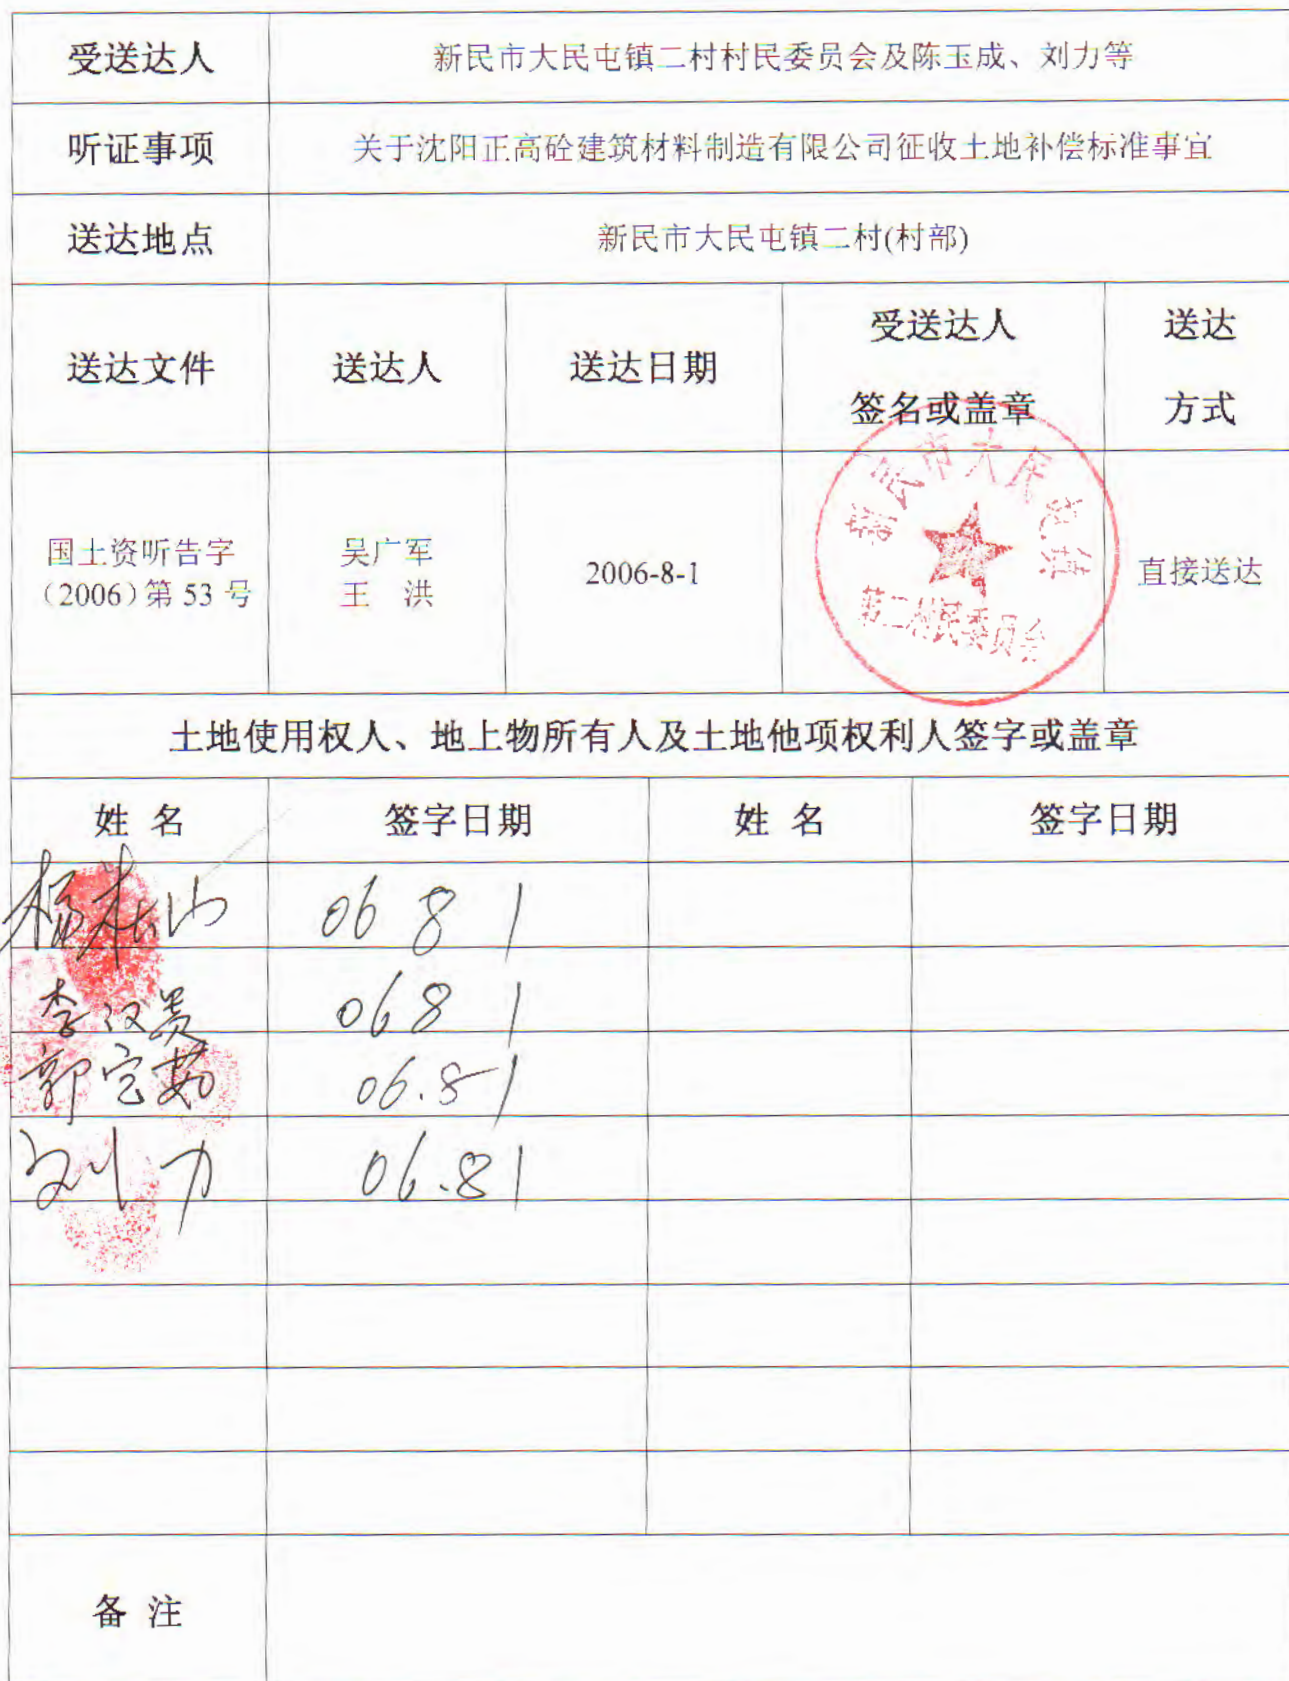 受送达人 新民市大民屯镇二村村民委员会及陈玉成、刘力等
听证事项 关于沈阳正高砼建筑材料制造有限公司征收土地补偿标准事宜
送达地点 新民市大民屯镇二村(村部)
送达文件 送达人 送达日期 受送达人 签名或盖章 送达 方式
国土资听告字 吴广军 2006-8-1 直接送达
（2006）第 53 号 王 洪
新民市大民屯镇
第二村民委员会
土地使用权人、地上物所有人及土地他项权利人签字或盖章
姓 名 签字日期 姓 名 签字日期
06 8 1
李汉 06 8 1
郭 06.8 1
刘力 06.8 1
备 注